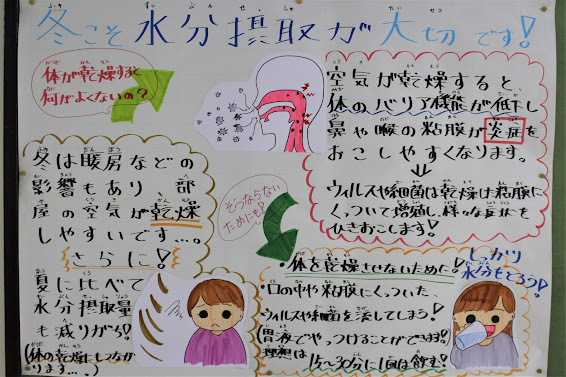 冬こそ水分摂取が大切です!
体が乾燥すると
何がよくないの?
冬は暖房などの
影響もあり、部
屋の空気が乾燥
しやすいです…。
さらに!
夏に比べて
水分摂取量
も減りがち!
(体の乾燥にもつなが
ります…。)
空気が乾燥すると
体のバリア機能が低下し
鼻や喉の粘膜が炎症を
おこしやすくなります。
ウィルスや細菌は乾燥した粘膜に
くっついて増殖し、様々な症状を
ひきおこします!
そうならない
ためにも!
・体を乾燥させないために!
・口の中や粘膜にくっついた、
ウィルスや細菌を流してしまう!
(胃液でやっつけることができます!)
理想は
15〜30分に1回は飲む!
しっかり
水分をとろう!